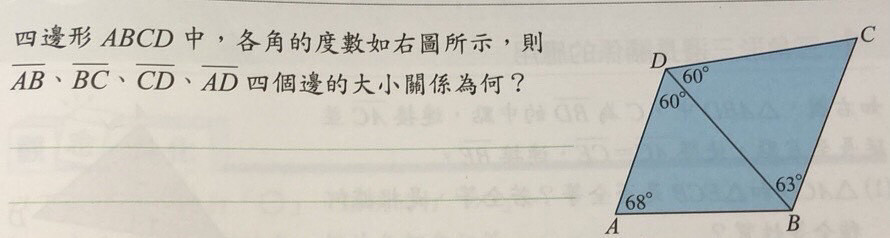 四邊形 ABCD 中，各角的度數如右圖所示，則
AB、BC、CD、AD 四個邊的大小關係為何？
C
D
60°
60°
63°
68°
A
B